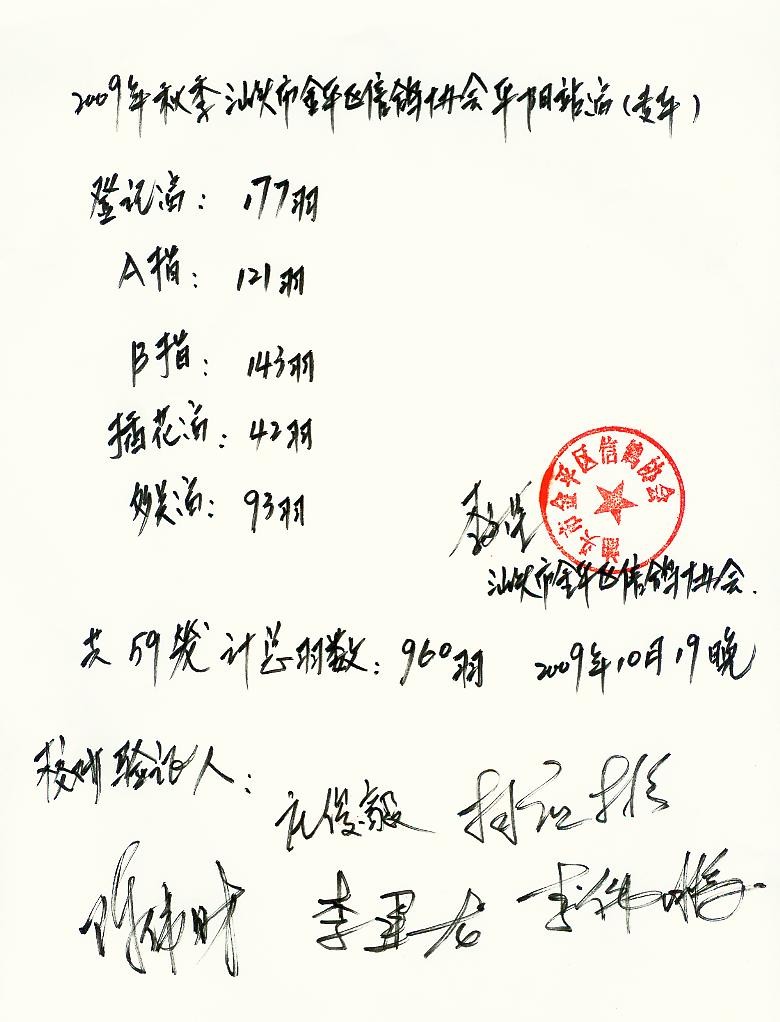 2009年秋季汕头市金平区信鸽协会平阳站 (专车)
登记 : 177羽
A指: 121羽
B指: 143羽
插花 : 42羽
93羽
汕头市金平区信鸽协会
汕头市金平区信鸽协会.
共59 计总羽数: 960羽 2009年10月19晚
校对验证人:
俊毅
伟
李 李伟